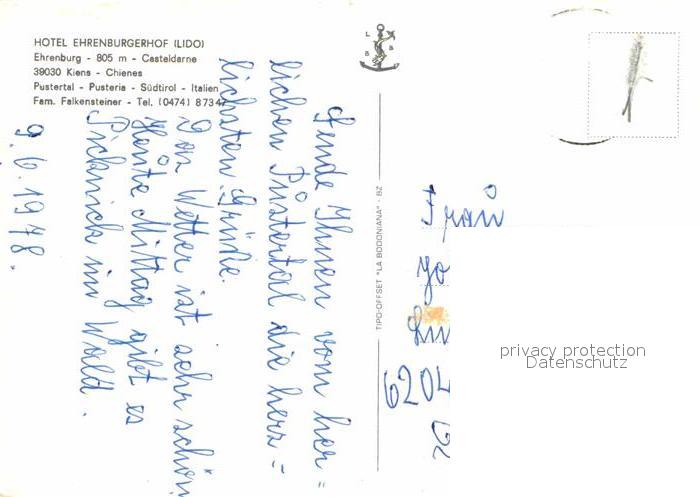 HOTEL EHRENBURGERHOF (LIDO)
Ehrenburg - 805 m - Casteldarne
39030 Kiens - Chienes
Pustertal - Pusteria - Südtirol - Italien
Fam. Falkensteiner - Tel. (0474) 87347
Sende Ihnen vom herr=
lichen Pustertal die herz=
lichsten Grüße.
Das Wetter ist sehr schön
Heute Mittag gibt es
Picknick im Wald.
9.6.1978.
L B
B S
TIPO-OFFSET "LA BODONIANA" - BZ
Frau
6204
privacy protection
Datenschutz